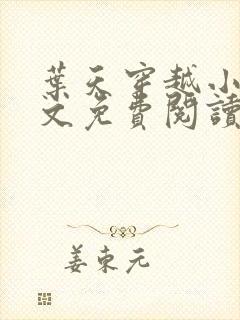 葉天穿越小
文免費閱讀
姜東元